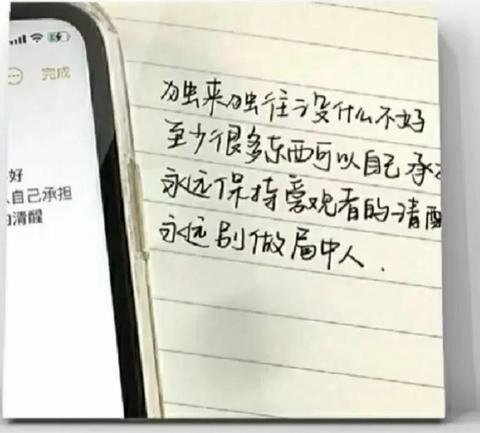 完成
好
自己承担
清醒
独来独往没什么不好
至少很多东西可以自己承
永远保持旁观者的清醒
永远别做局中人.